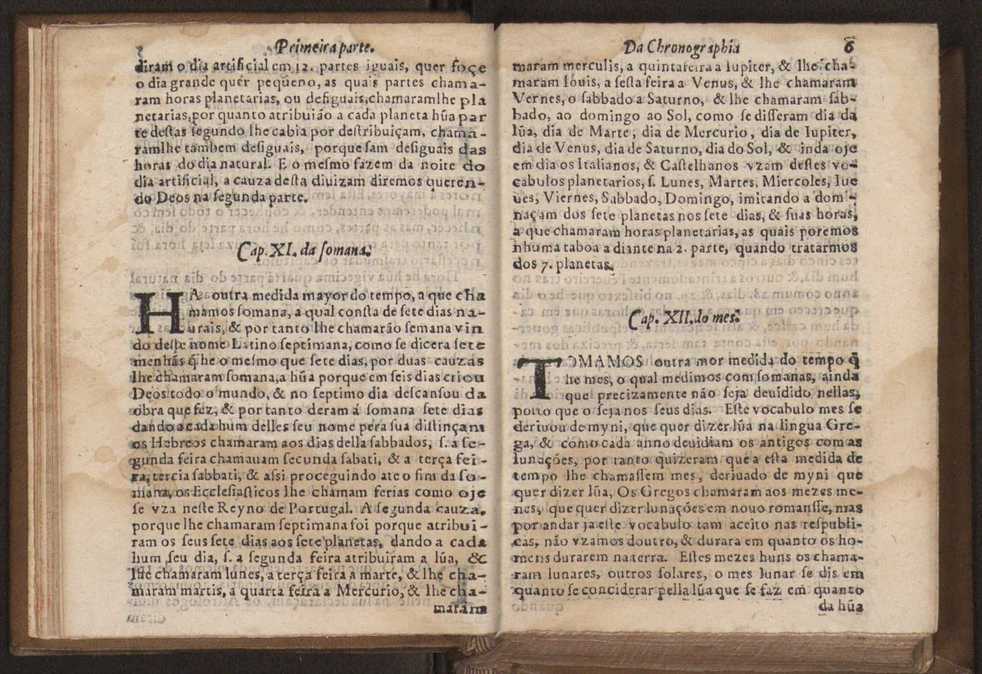 Primeira parte.
diram o dia artificial em 12. partes iguais, quer foçe
o dia grande quer pequeno, as quais partes chama-
ram horas planetarias, ou desiguais, chamaramlhe pla
netarias, por quanto atribuião a cada planeta hũa par
te destas segundo lhe cabia por destribuiçam, chama-
ramlhe tambem desiguais, porque sam desiguais das
horas do dia natural. E o mesmo fazem da noite do
dia artificial, a cauza desta diuizam diremos queren-
do Deos na segunda parte.
Cap. XI. da somana.
HA outra medida mayor do tempo, a que cha
mamos somana, a qual consta de sete dias na-
turais, & por tanto lhe chamarão semana vin
do deste nome Latino septimana, como se dicera sete
menhãs q̃ he o mesmo que sete dias, por duas cauzas
lhe chamaram somana, a hũa porque em seis dias criou
Deos todo o mundo, & no septimo dia descansou da
obra que fez, & por tanto deram á somana sete dias
dando a cada hum delles seu nome pera sua distinçam
os Hebreos chamaram aos dias della sabbados, s. a se-
gunda feira chamauam secunda sabati, & a terça fei-
ra, tercia sabbati, & assi proceguindo ate o fim da so-
mana, os Ecclesiasticos lhe chamam ferias como oje
se vza neste Reyno de Portugal. A segunda cauza,
porque lhe chamaram septimana foi porque atribui-
ram os seus sete dias aos sete planetas, dando a cada
hum seu dia, s. a segunda feira atribuiram a lúa, &
lhe chamaram lunes, a terça feira a marte, & lhe cha-
maram martis, a quarta feira a Mercurio, & lhe cha-
maram
Da Chronographia 6
maram merculis, a quinta feira a Iupiter, & lhe cha-
maram Iouis, a sesta feira a Venus, & lhe chamaram
Vernes, o sabbado a Saturno, & lhe chamaram sab-
bado, ao domingo ao Sol, como se disseram dia da
lũa, dia de Marte, dia de Mercurio, dia de Iupiter,
dia de Venus, dia de Saturno, dia do Sol, & inda oje
em dia os Italianos, & Castelhanos vzam destes vo-
cabulos planetarios, s. Lunes, Martes, Miercoles, Iue
ues, Viernes, Sabbado, Domingo, imitando a dom-
naçam dos sete planetas nos sete dias, & suas horas,
a que chamaram horas planetarias, as quais poremos
nhuma taboa a diante na 2. parte, quando tratarmos
dos 7. planetas.
Cap. XII. do mes.
TOMAMOS outra mor medida do tempo q̃
he mes, o qual medimos com somanas, ainda
que precizamente não seja deuidido nellas,
posto que o seja nos seus dias. Este vocabulo mes se
deriuou de myni, que quer dizer lũa na lingua Gre-
ga, & como cada anno deuidiam os antigos com as
lunações, por tanto quizeram que a esta medida de
tempo lhe chamassem mes, deriuado de myni que
quer dizer lũa, Os Gregos chamaram aos mezes me-
nes, que quer dizer lunações em nouo romansse, mas
por andar ja este vocabulo tam aceito nas respubli-
cas, não vzamos doutro, & durara em quanto os ho-
mens durarem na terra. Estes mezes huns os chama-
ram lunares, outros solares, o mes lunar se dis em
quanto se conciderar pella lũa que se faz em quanto
da hũa